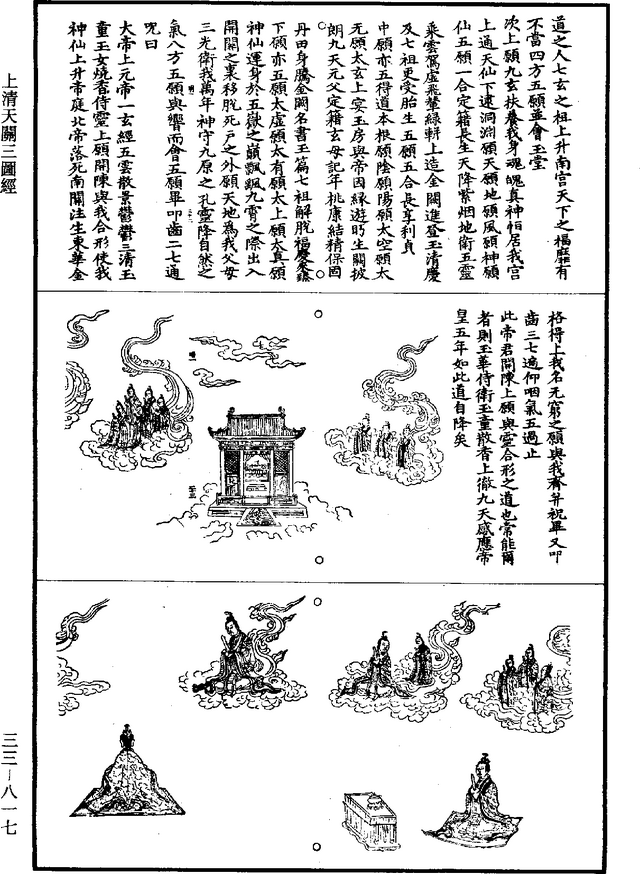 道之人七玄之祖上升南宮天下之福靡有
不當四方五願並會玉堂
次上願九玄扶養我身魂魄真神恒居我宮
上通天仙下逮洞淵願天願地願風願神願
仙五願一合定籍長生天降紫烟地衛五靈
乘雲駕虛飛輦綠軿上造金闕進登玉清慶
及七祖更受胎生五願五合長享利貞
中願亦五得道本根願陰願陽願太空願太
无願太玄上宴玉房與帝因緣遊眄生關披
朗九天元父定籍玄母記年桃康結精保固
丹田身騰金闕名書玉篇七祖解脫福慶來臻
下願亦五願太虛願太有願太上願太真願
神仙運身於五嶽之巔飄飄九霄之際出入
開闔之裏移脫死戶之外願天地為我父母
三光衛我萬年神守九原之孔靈降自然之
氣八方五願與響而會五願畢叩齒二七通
呪曰
大帝上元帝一玄經五雲散景鬱鬱三清玉
童玉女燒香侍靈上願開陳與我合形使我
神仙上升帝庭北帝落死南關注生東華金
格得上我名无窮之願與我齊并祝畢又叩
齒三七遍仰咽氣五過止
此帝君開陳上願與靈合形之道也常能爾
者則玉華侍衛玉童散香上徹九天感應帝
皇五年如此道自降矣
上清天關三圖經
三三－八一七